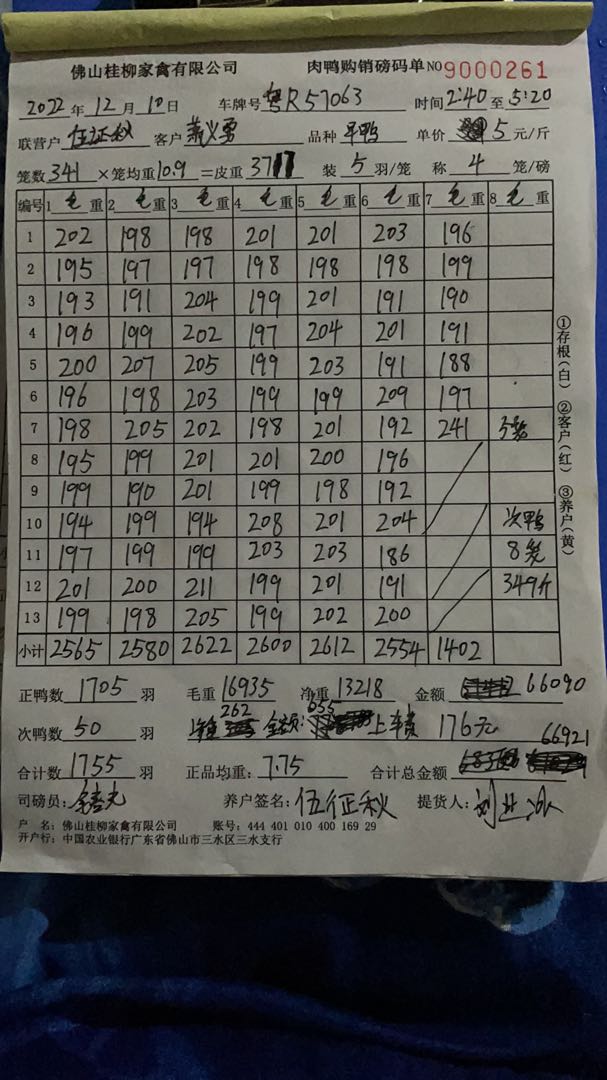 佛山桂柳家禽有限公司 肉鸭购销磅码单 NO 9000261
2022年12月10日 车牌号 粤R57063 时间 2:40 至 5:20
联营户 伍证秋 客户 萧义勇 品种 旱鸭 单价 5 元/斤
笼数 341 ×笼均重 10.9 =皮重 3717 装 5 羽/笼 称 4 笼/磅
编号 1 毛 重 2 毛 重 3 毛 重 4 毛 重 5 毛 重 6 毛 重 7 毛 重 8 毛 重
1 202 198 198 201 201 203 196
2 195 197 197 198 198 198 199
3 193 191 204 199 201 191 190
4 196 199 202 197 204 201 191
5 200 207 205 199 203 191 188
6 196 198 203 199 199 209 197
7 198 205 202 198 201 192 241 5笼
8 195 199 201 201 200 196
9 199 190 201 199 198 192
10 194 199 194 208 201 204 次鸭
11 197 199 199 203 203 186 8笼
12 201 200 211 199 201 191 349斤
13 199 198 205 199 202 200
小计 2565 2580 2622 2600 2612 2554 1402
正鸭数 1705 羽 毛重 16935 净重 13218 金额 66090
次鸭数 50 羽 262 金额: 655 上车费 176元 66921
合计数 1755 羽 正品均重: 7.75 合计总金额
司磅员: 养户签名: 伍征秋 提货人:
户 名: 佛山桂柳家禽有限公司 账号: 444 401 010 400 169 29
开户行: 中国农业银行广东省佛山市三水区三水支行
①存根(白) ②客户(红) ③养户(黄)